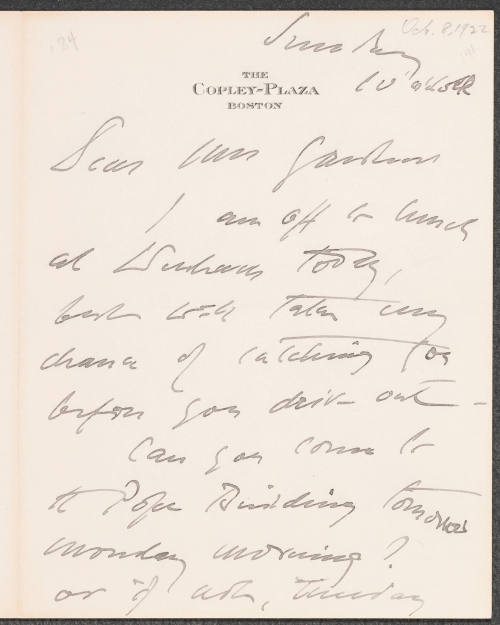 Oct. 8, 1922
184
Sunday
10 o'clock
THE
COPLEY-PLAZA
BOSTON
Dear Mrs Gardner
I am off to lunch
at today,
but will take my
chance of catching you
before you drive out –
Can you come to
the Pope Building tomorrow
Monday morning?
or if not, Tuesday